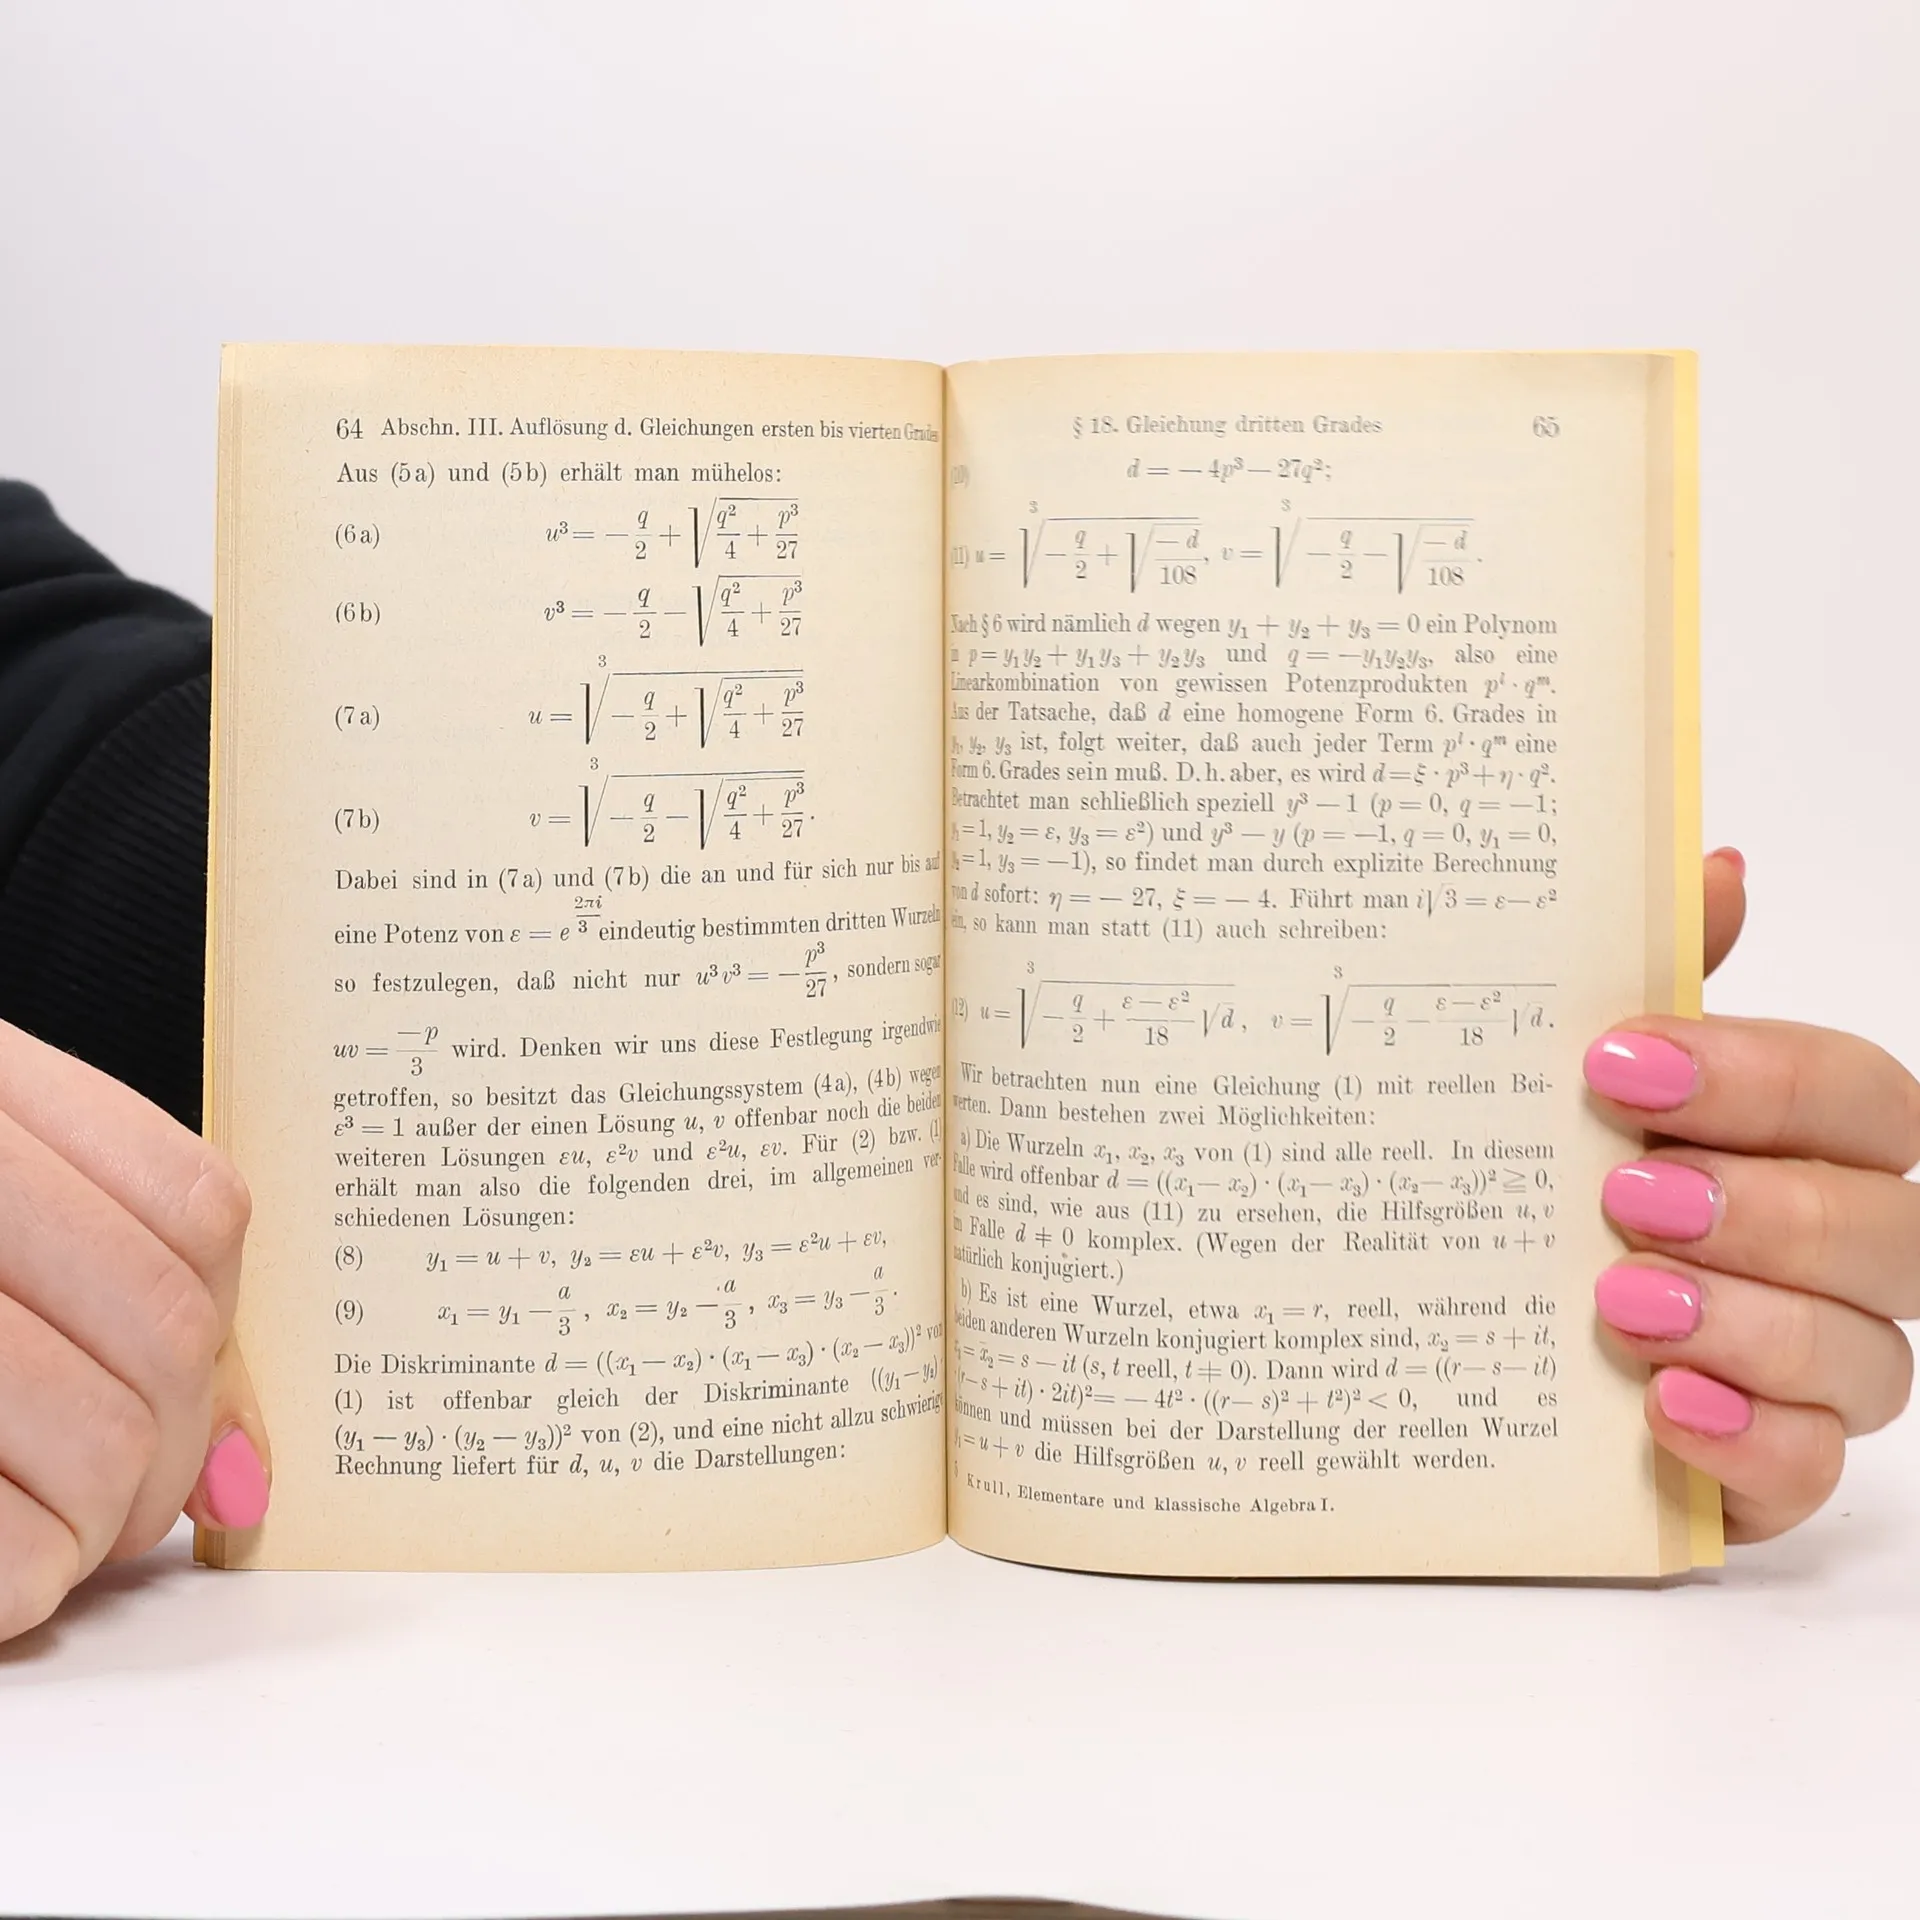 64 Abschn. III. Auflösung d. Gleichungen ersten bis vierten Grades
Aus (5a) und (5b) erhält man mühelos:
(6a) u³ = − q/2 + √(q²/4 + p³/27)
(6b) v³ = − q/2 − √(q²/4 + p³/27)
(7a) u = ³√(− q/2 + √(q²/4 + p³/27))
(7b) v = ³√(− q/2 − √(q²/4 + p³/27)).
Dabei sind in (7a) und (7b) die an und für sich nur bis auf
eine Potenz von ε = e^(2πi/3) eindeutig bestimmten dritten Wurzeln
so festzulegen, daß nicht nur u³v³ = − p³/27, sondern sogar
uv = −p/3 wird. Denken wir uns diese Festlegung irgendwie
getroffen, so besitzt das Gleichungssystem (4a), (4b) wegen
ε³ = 1 außer der einen Lösung u, v offenbar noch die beiden
weiteren Lösungen εu, ε²v und ε²u, εv. Für (2) bzw. (1)
erhält man also die folgenden drei, im allgemeinen ver-
schiedenen Lösungen:
(8) y₁ = u + v, y₂ = εu + ε²v, y₃ = ε²u + εv,
(9) x₁ = y₁ − a/3, x₂ = y₂ − a/3, x₃ = y₃ − a/3.
Die Diskriminante d = ((x₁ − x₂) · (x₁ − x₃) · (x₂ − x₃))² von
(1) ist offenbar gleich der Diskriminante ((y₁ − y₂)
(y₁ − y₃) · (y₂ − y₃))² von (2), und eine nicht allzu schwierige
Rechnung liefert für d, u, v die Darstellungen:
§ 18. Gleichung dritten Grades 65
(10) d = − 4p³ − 27q²;
(11) u = ³√(− q/2 + √(−d/108)), v = ³√(− q/2 − √(−d/108)).
Nach § 6 wird nämlich d wegen y₁ + y₂ + y₃ = 0 ein Polynom
in p = y₁y₂ + y₁y₃ + y₂y₃ und q = −y₁y₂y₃, also eine
Linearkombination von gewissen Potenzprodukten pˡ · qᵐ.
Aus der Tatsache, daß d eine homogene Form 6. Grades in
y₁, y₂, y₃ ist, folgt weiter, daß auch jeder Term pˡ · qᵐ eine
Form 6. Grades sein muß. D. h. aber, es wird d = ξ · p³ + η · q².
Betrachtet man schließlich speziell y³ − 1 (p = 0, q = −1;
y₁ = 1, y₂ = ε, y₃ = ε²) und y³ − y (p = −1, q = 0, y₁ = 0,
y₂ = 1, y₃ = −1), so findet man durch explizite Berechnung
von d sofort: η = − 27, ξ = − 4. Führt man i√3 = ε − ε²
ein, so kann man statt (11) auch schreiben:
(12) u = ³√(− q/2 + (ε − ε²)/18 √d), v = ³√(− q/2 − (ε − ε²)/18 √d).
Wir betrachten nun eine Gleichung (1) mit reellen Bei-
werten. Dann bestehen zwei Möglichkeiten:
a) Die Wurzeln x₁, x₂, x₃ von (1) sind alle reell. In diesem
Falle wird offenbar d = ((x₁ − x₂) · (x₁ − x₃) · (x₂ − x₃))² ≧ 0,
und es sind, wie aus (11) zu ersehen, die Hilfsgrößen u, v
im Falle d ≠ 0 komplex. (Wegen der Realität von u + v
natürlich konjugiert.)
b) Es ist eine Wurzel, etwa x₁ = r, reell, während die
beiden anderen Wurzeln konjugiert komplex sind, x₂ = s + it,
= x̄₂ = s − it (s, t reell, t ≠ 0). Dann wird d = ((r − s − it)
(r − s + it) · 2it)² = − 4t² · ((r − s)² + t²)² < 0, und es
können und müssen bei der Darstellung der reellen Wurzel
y₁ = u + v die Hilfsgrößen u, v reell gewählt werden.
Krull, Elementare und klassische Algebra I.